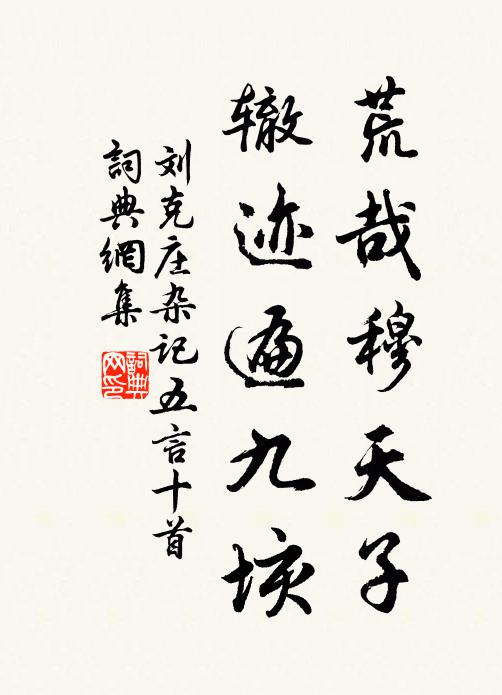 荒哉穆天子
辙迹遍九垓
刘克庄杂记五言十首
詞典網集
詞典网印